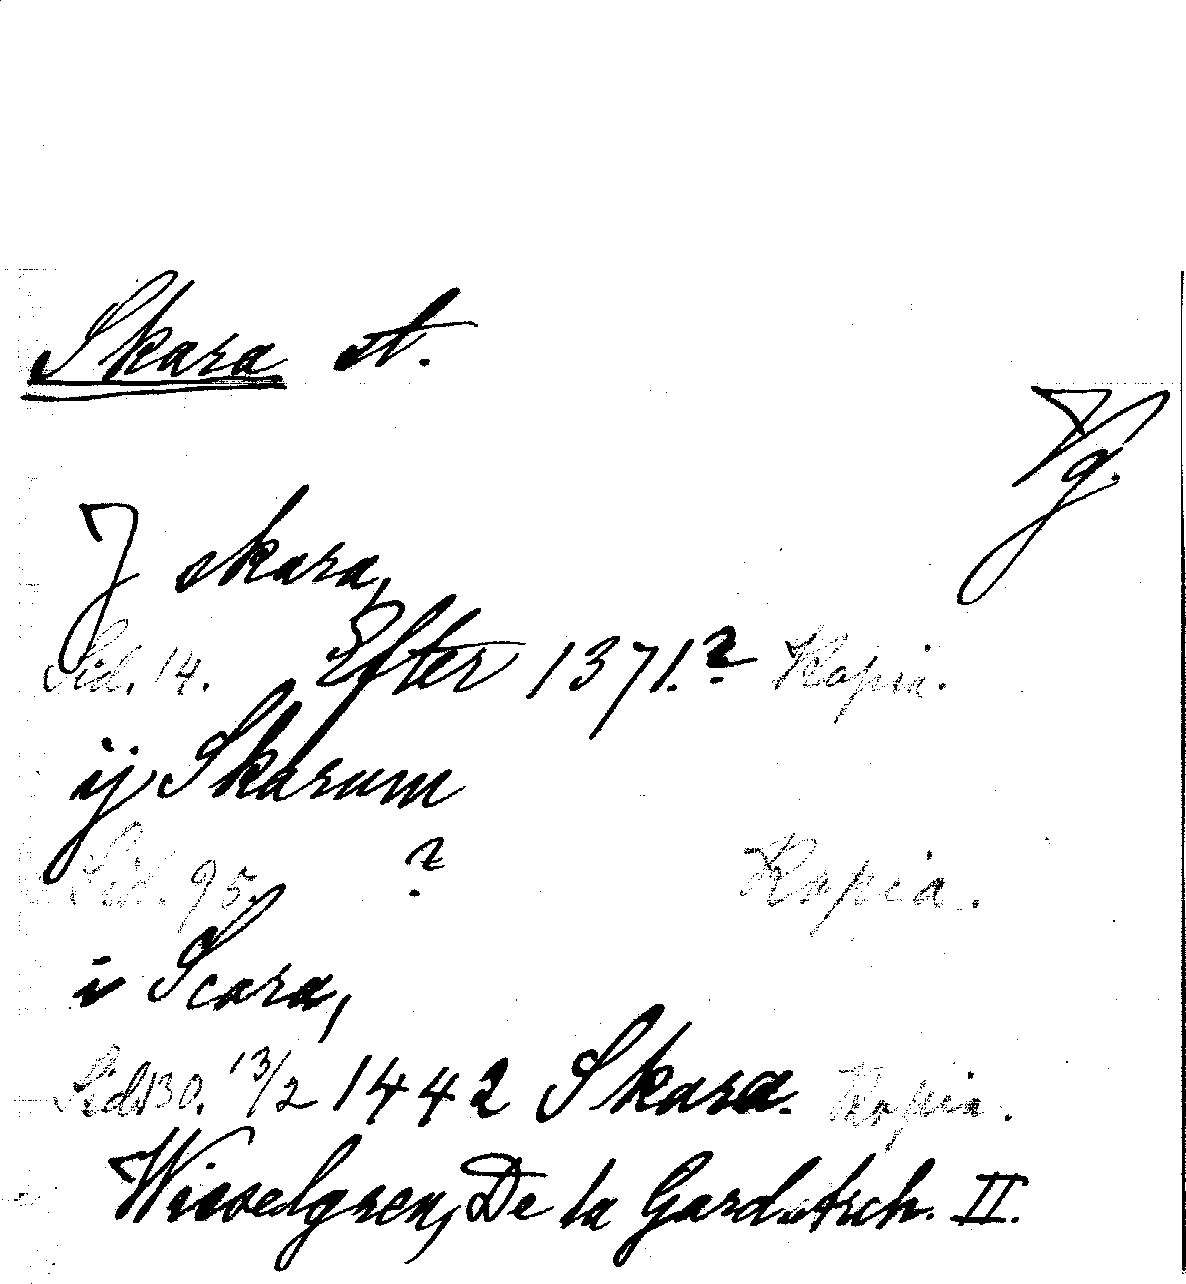 Skara st.
Vg.
J skara,
Sid. 14. Efter 1371.? Kopia.
ij Skarum
Sid. 95. ? Kopia.
i Scara,
Sid. 130. 13/2 1442 Skara. Kopia.
Wieselgren, De la Gard. arch. II.